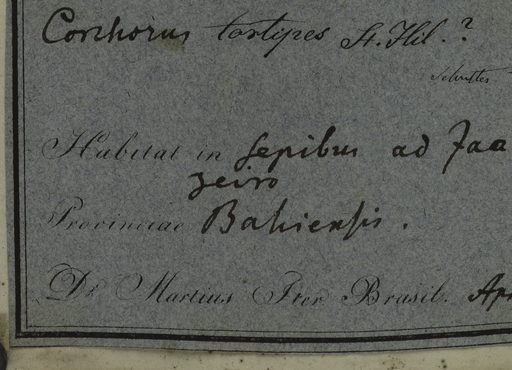 Corchorus tortipes St. Hil. ?
Habitat in sepibus ad Joa
zeiro
Provinciae Bahiensis.
Dr. Martius Iter Brasil. Apr